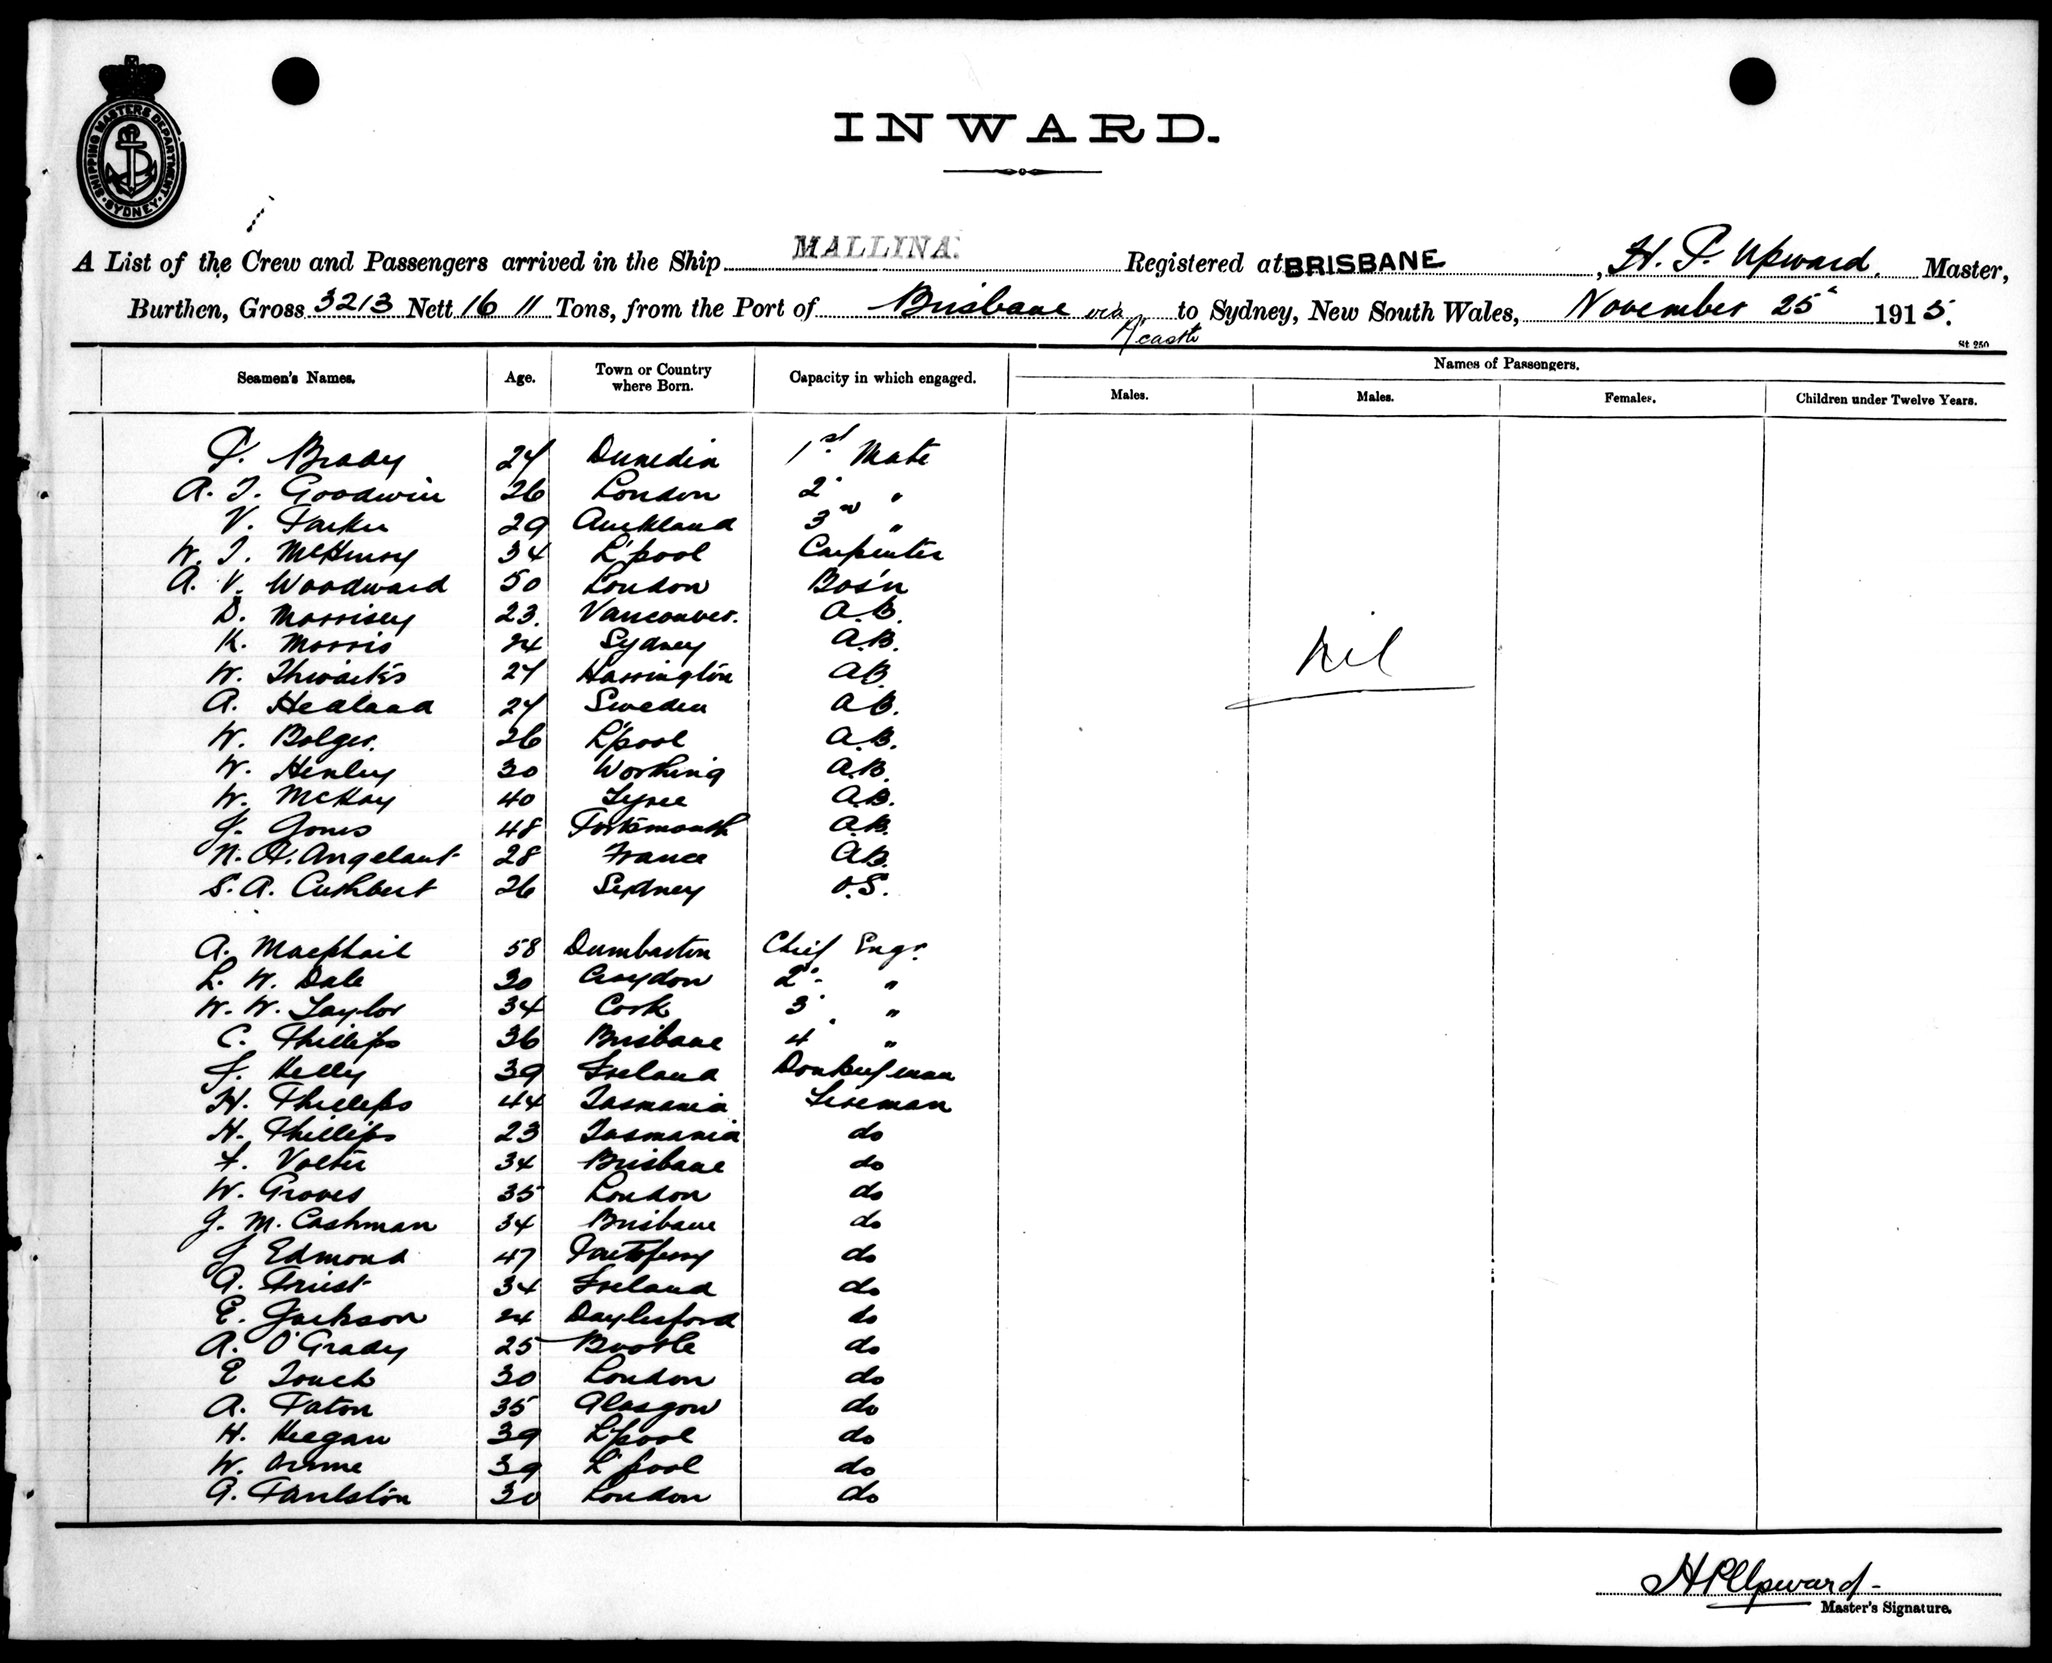 SHIPPING MASTERS DEPARTMENT
SYDNEY
INWARD.
A List of the Crew and Passengers arrived in the Ship MALLINA. Registered at BRISBANE, H. P. Upward. Master,
Burthen, Gross 3213 Nett 1611 Tons, from the Port of Brisbane via N'castle to Sydney, New South Wales, November 25" 1915.
St 250
Seamen's Names. Age. Town or Country where Born. Capacity in which engaged. Names of Passengers.
Males. Males. Females. Children under Twelve Years.
P. Brady 24 Dunedin 1st Mate
A. J. Goodwin 26 London 2" "
V. Parker 29 Auckland 3rd "
W. J. McHenry 34 L'pool Carpenter
A. V. Woodward 50 London Bos'n
D. Morrisey 23. Vancouver. A.B.
K. Morris 24 Sydney A.B.
W. Thwaites 24 Harrington AB.
A. Hedland 24 Sweden A B.
W. Bolger. 26 L'pool A.B.
W. Henley 30 Worthing A.B.
W. McKay 40 A.B.
J. Jones 48 Portsmouth A.B.
N. A. Angelaut 28 France AB.
S. A. Cuthbert 26 Sydney O.S.
Nil
A. Macphail 58 Dumbarton Chief Engr.
L. W. Dale 30 Croydon 2" "
W. W. Taylor 34 Cork 3" "
C. Phillips 36 Brisbane 4" "
J. Kelly 39 Ireland Donkeyman
H. Phillips 44 Tasmania Fireman
H. Phillips 23 Tasmania do
F. Volter 34 Brisbane do
W. Groves 35 London do
J. M. Cashman 34 Brisbane do
J Edmond 47 Portaferry do
A. Priest 34 Ireland do
E. Jackson 24 Daylesford do
A. O'Grady 25 Bootle do
E Touch 30 London do
A. Paton 35 Glasgow do
H. Keegan 39 L'pool do
W. 39 L'pool do
A. Paulston 30 London do
H P Upward
Master's Signature.